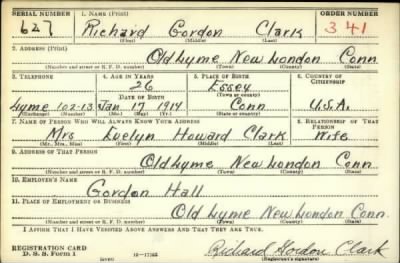 SERIAL NUMBER 1. NAME (Print) ORDER NUMBER
627 Richard Gordon Clark 341
(First) (Middle) (Last)
2. ADDRESS (Print)
Old Lyme New London Conn.
(Number and street or R. F. D. number) (Town) (County) (State)
3. TELEPHONE 4. AGE IN YEARS 5. PLACE OF BIRTH 6. COUNTRY OF CITIZENSHIP
26 Essex
DATE OF BIRTH (Town or county)
Lyme 102-13 Jan 17 1914 Conn U.S.A.
(Exchange) (Number) (Mo.) (Day) (Yr.) (State or country)
7. NAME OF PERSON WHO WILL ALWAYS KNOW YOUR ADDRESS 8. RELATIONSHIP OF THAT PERSON
Mrs Evelyn Howard Clark Wife
(Mr., Mrs., Miss) (First) (Middle) (Last)
9. ADDRESS OF THAT PERSON
Old Lyme New London Conn
(Number and street or R. F. D. number) (Town) (County) (State)
10. EMPLOYER'S NAME
Gordon Hall
11. PLACE OF EMPLOYMENT OR BUSINESS
Old Lyme New London Conn.
(Number and street or R. F. D. number) (Town) (County) (State)
I AFFIRM THAT I HAVE VERIFIED ABOVE ANSWERS AND THAT THEY ARE TRUE.
REGISTRATION CARD
D. S. S. Form 1 Richard Gordon Clark
(over) 16-17105 (Registrant's signature)